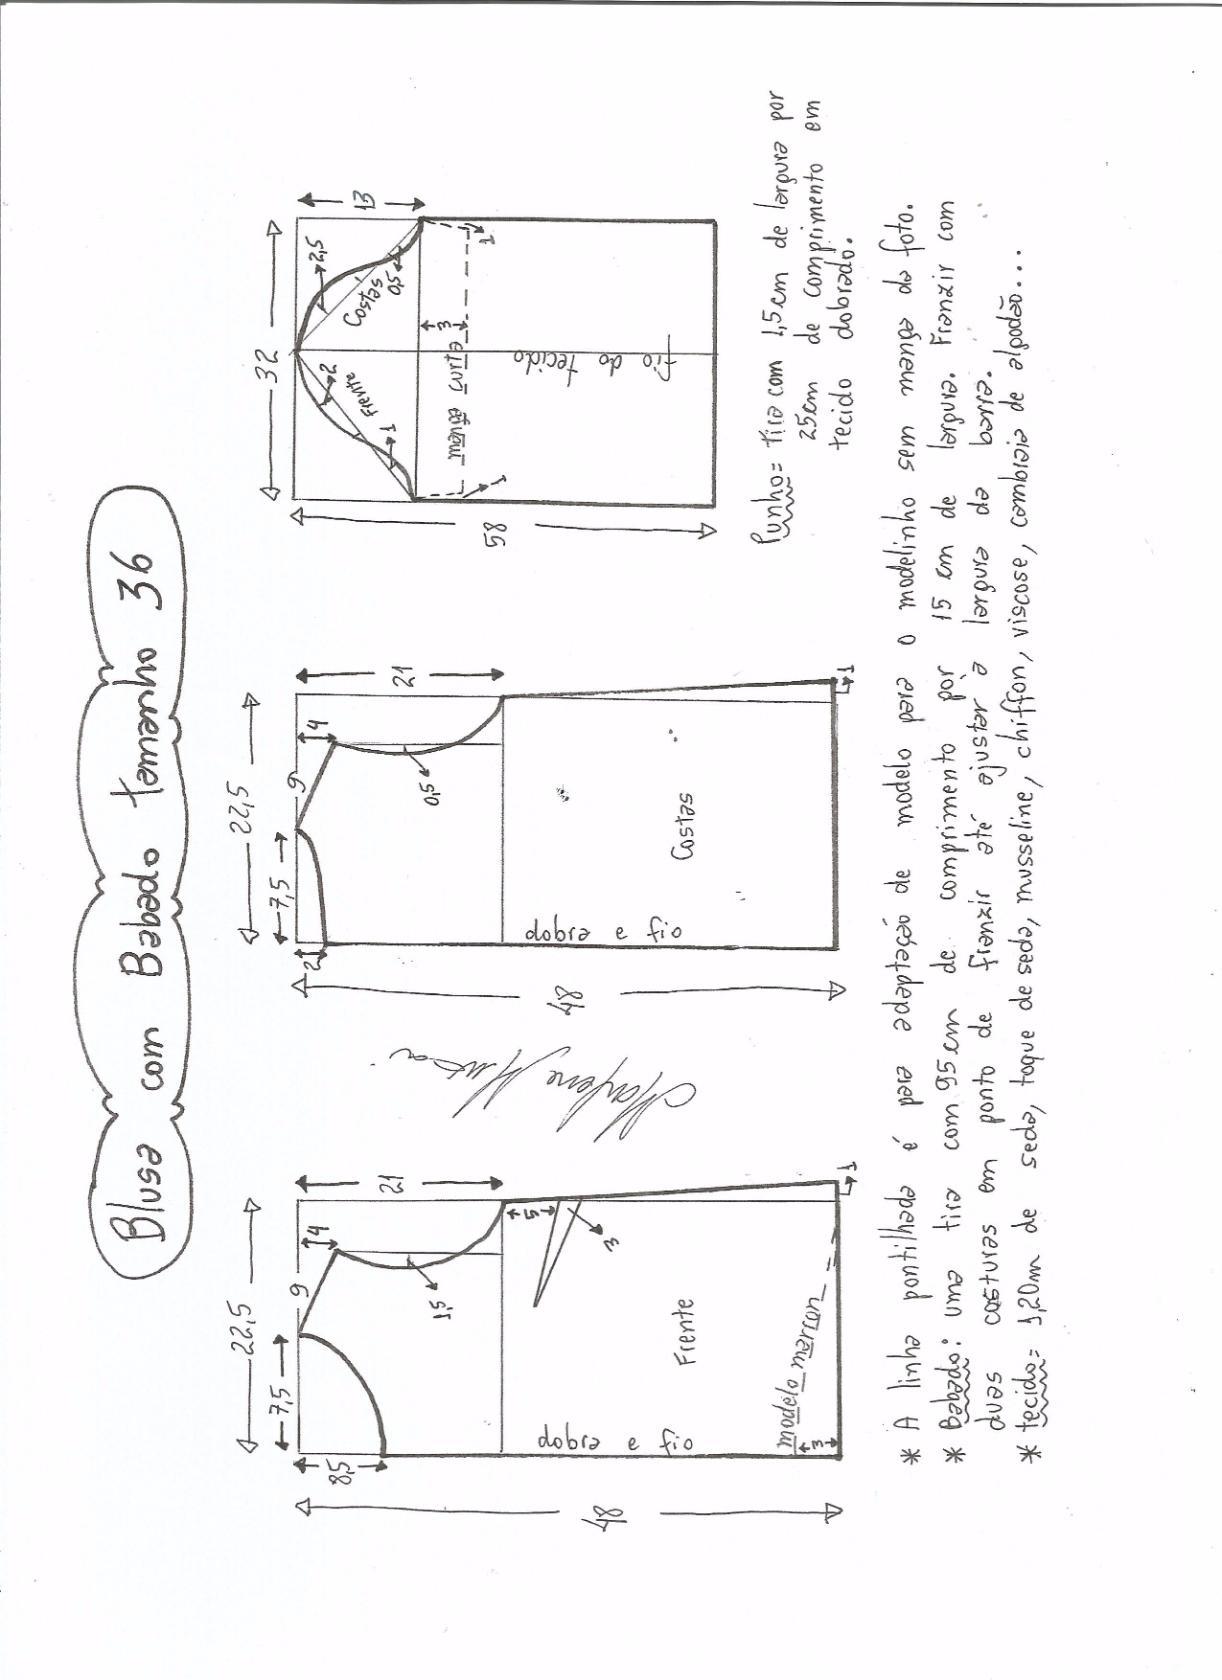 Blusa com Babado tamanho 36
22,5
7,5
9
4
8,5
21
1,5
5
3
48
Frente
dobra e fio
modelo marrom
3
1
22,5
7,5
9
4
2
21
0,5
48
Costas
dobra e fio
1
32
13
2
Frente
1
2,5
Costas
0,5
3
manga curta
1
1
58
fio do tecido
Punho= tira com 1,5cm de largura por
25cm de comprimento em
tecido dobrado.
* A linha pontilhada é para adaptação de modelo para o modelinho sem manga da foto.
* Babado: uma tira com 95cm de comprimento por 15 cm de largura. Franzir com
duas costuras em ponto de franzir até ajustar a largura da barra.
* tecido= 1,20m de seda, toque de seda, musseline, chiffon, viscose, cambraia de algodão...